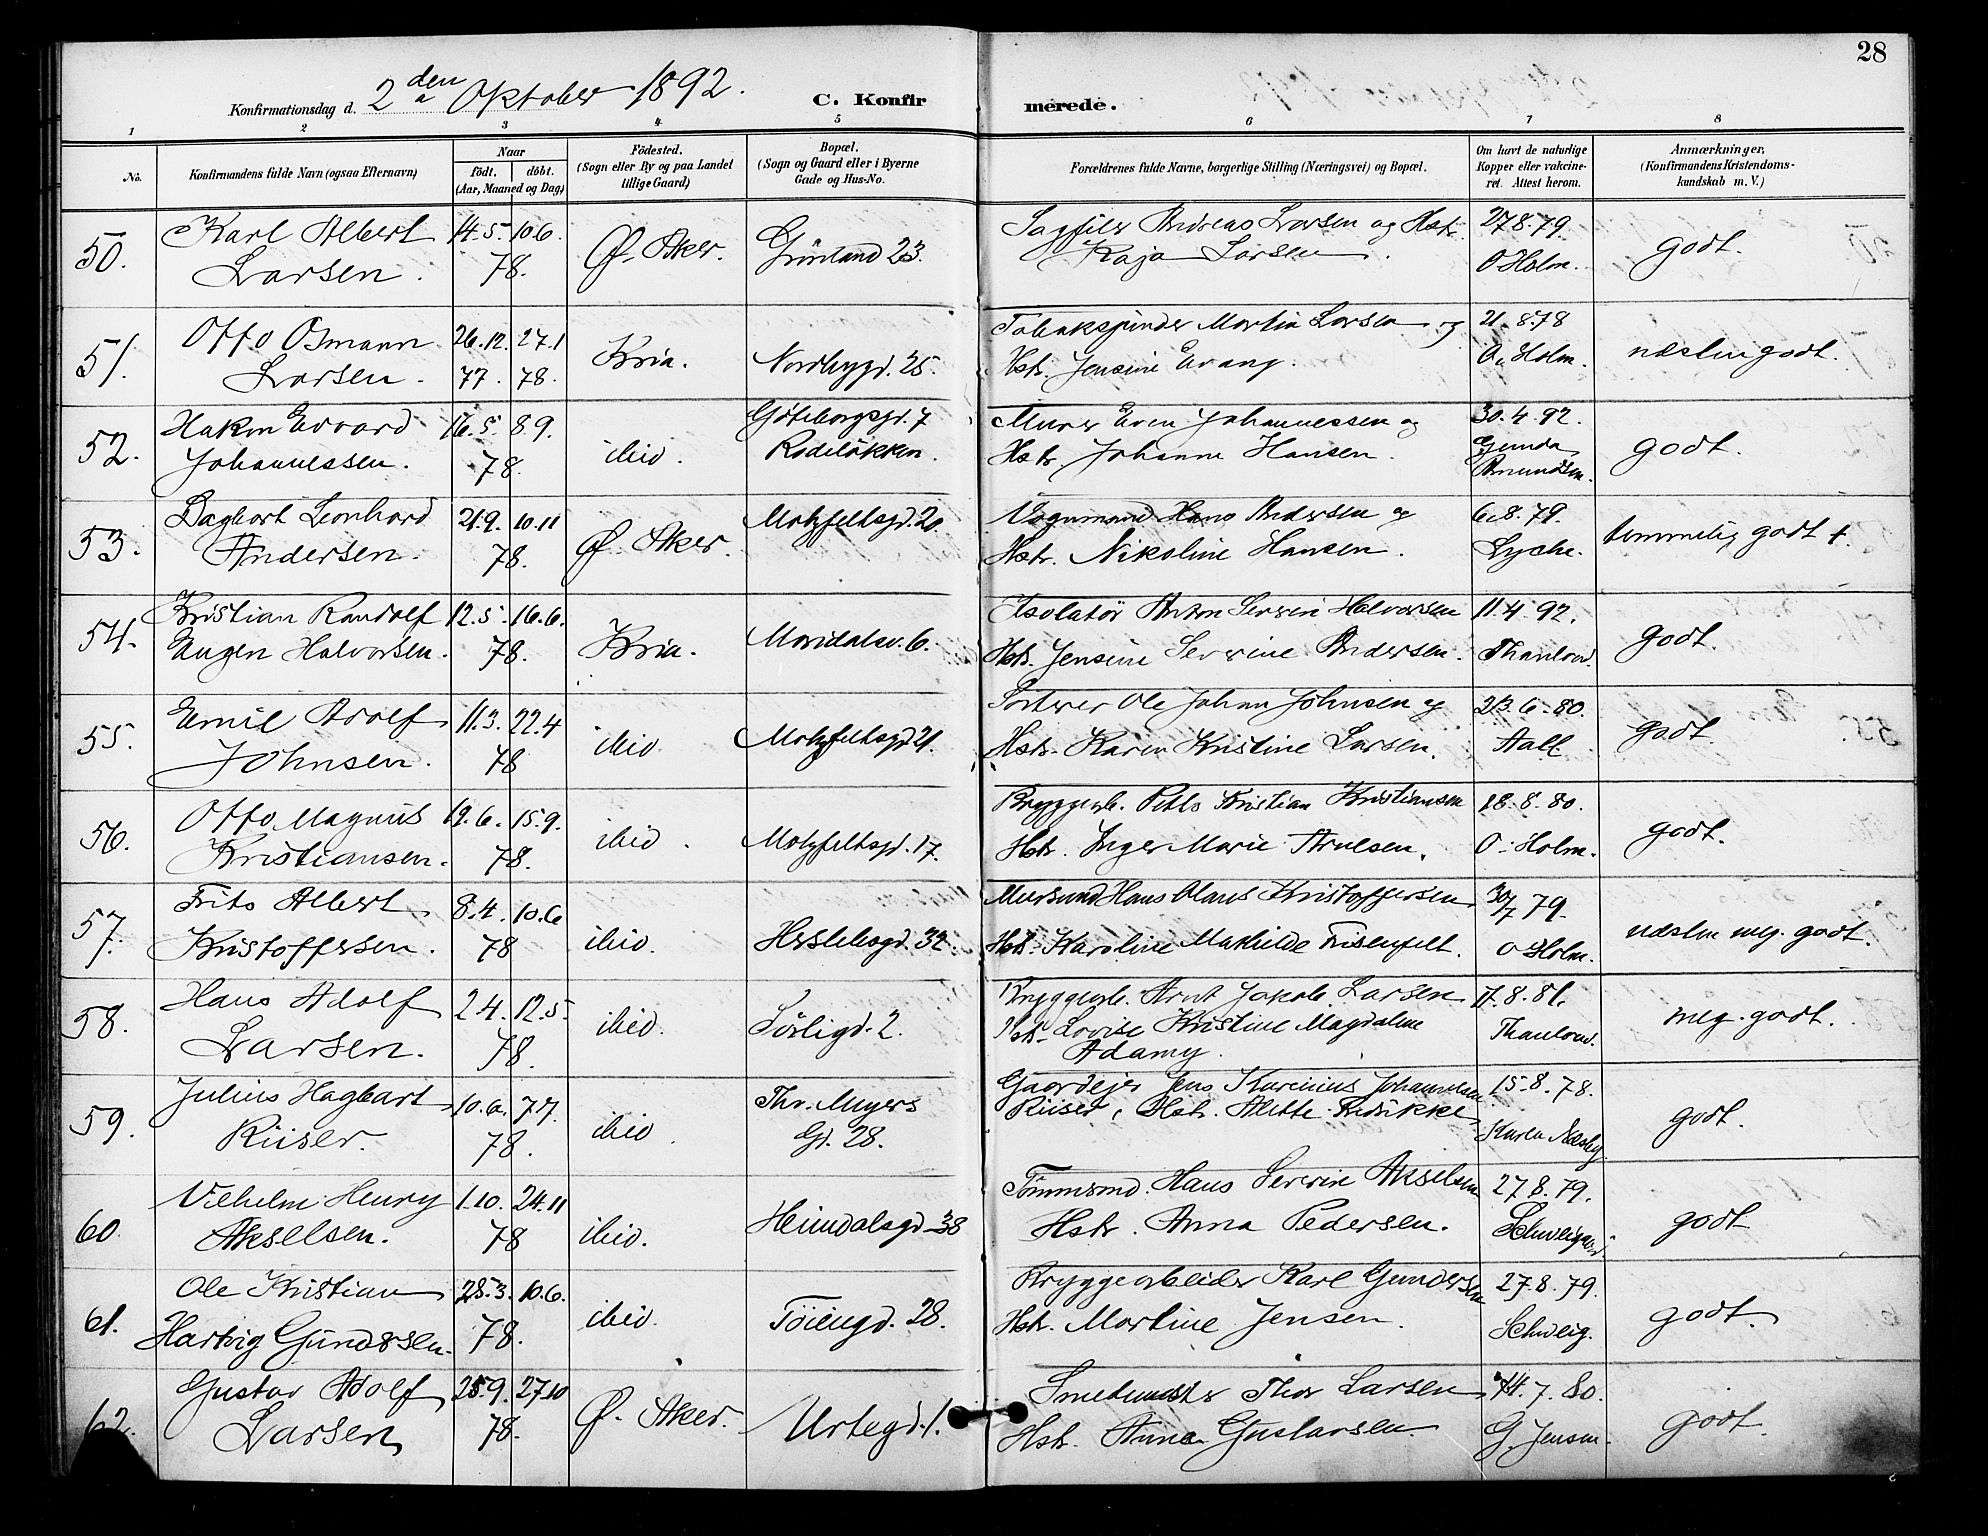 28
Konfirmationsdag d. 2den Oktober 1892.
C. Konfirmerede.
1 2 3 4 5 6 7 8
No.
Konfirmandens fulde Navn (ogsaa Efternavn)
Naar
födt. döbt.
(Aar, Maaned og Dag)
Födested.
(Sogn eller By og paa Landet
tillige Gaard)
Bopæl.
(Sogn og Gaard eller i Byerne
Gade og Hus-No.
Forældrenes fulde Navne, borgerlige Stilling (Næringsvei) og Bopæl.
Om havt de naturlige
Kopper eller vakcine-
ret. Attest herom.
Anmærkninger,
(Konfirmandens Kristendoms-
kundskab m. V.)
50. Karl Albert 14.5. 10.6. Ø. Aker. Grönland 23. Sagfiler Andreas Larsen og Hstr. 27.8.79. godt.
Larsen. 78. Kaja Larsen. O Holm.
51. Otto Osmann 26.12. 27.1 Kria. Nordbygd. 25. Tobakspinder Martin Larsen og 21.8.78 næsten godt.
Larsen. 77. 78. Hstr. Jensine Evang. O. Holm.
52. Hakon Edvard 16.5. 8.9. ibid. Göteborgsgd. 7 Murer Even Johannessen og 30.4.92. godt.
Johannessen. 78. Rodelökken. Hstr. Johanne Hansen. Gunda
Amundsen.
53. Dagbart Leonhard 21.9. 10.11 Ø. Aker. Motzfeltsgd. 20. Vognmand Hans Andersen og 6.8.79. temmelig godt +.
Andersen. 78. Hstr. Nikoline Hansen. Lyche.
54. Kristian Randolf 12.5. 16.6. Kria. Maridalsv. 6. Isolatör Anton Severin Halvorsen 11.4.92. godt.
Eugen Halvorsen. 78. Hstr. Jensine Severine Andersen. Thaulow.
55. Emil Adolf 11.3. 22.4 ibid. Motzfeltsgd. 21. Sorterer Ole Johan Johnsen og 23.6.80. godt.
Johnsen. 78 Hstr. Karen Kristine Larsen. Aall.
56. Otto Magnus 19.6. 15.9. ibid. Motzfeltsgd. 17. Bryggearb. Kristian Kristiansen 18.8.80. godt.
Kristiansen. 78. Hstr. Inger Marie Arnesen. O. Holm.
57. Frits Albert 8.4. 10.6 ibid. Herslebsgd. 32. Mursvend Hans Olaus Kristoffersen 30/7 79. næsten meg. godt.
Kristoffersen. 78 Hstr. Karoline Mathilde Frisenfelt. O Holm.
58. Hans Adolf 2.4. 12.5. ibid. Sörligd. 2. Bryggearb. Arnt Jakob Larsen 17.8.81. meg. godt.
Larsen. 78. Hstr. Lovise Kristine Magdalene Thaulow.
Adamy.
59. Julius Hagbart 10.6. 7.7. ibid. Thv. Meyers Gaardejer Jens Karinius Johannesen 15.8.78. godt.
Riiser. 78. Gd. 28. Riiser, Hstr. Alette Karen Næsby.
60. Vilhelm Henry 1.10. 24.11 ibid. Heimdalsgd. 38 Tömmsmd. Hans Severin Akselsen 27.8.79. godt
Akselsen. 78 Hstr. Anna Pedersen. Schweigaard.
61. Ole Kristian 28.3. 10.6. ibid. Töiengd. 28. Bryggearbeider Karl Gundersen 27.8.79. godt.
Hartvig Gundersen. 78. Hstr. Martine Jensen. Schweig.
62. Gustav Adolf 25.9. 27.10 Ø. Aker. Urtegd. 1. Smedmester Thor Larsen 14.7.80. godt.
Larsen 78. Hstr. Anna Gustavsen G. Jensen.